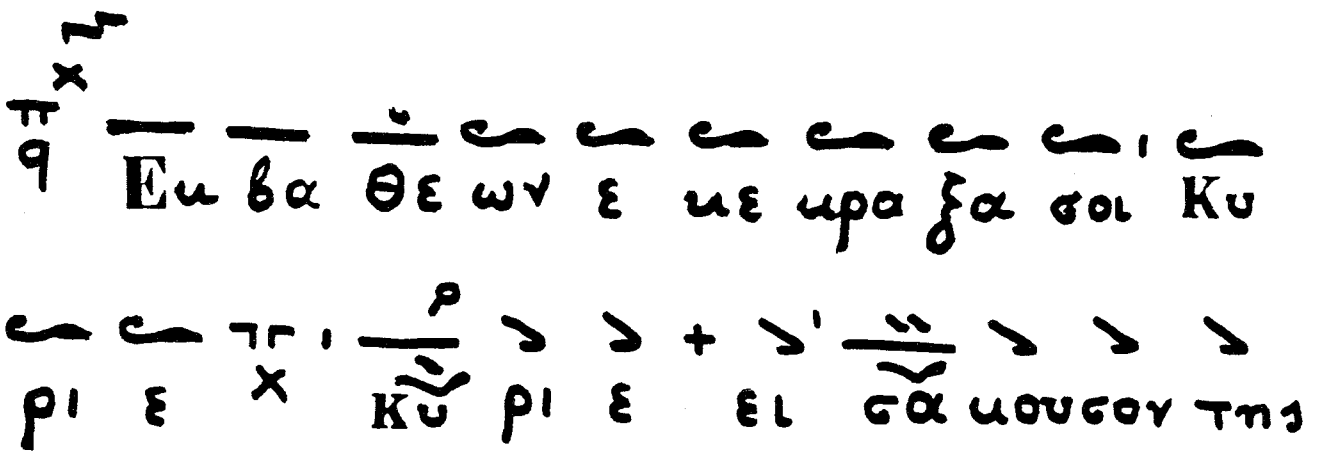 Εκ βα θε ων ε κε κρα ξα σοι Κυ
ρι ε Κυ ρι ε ει σα κου σον της